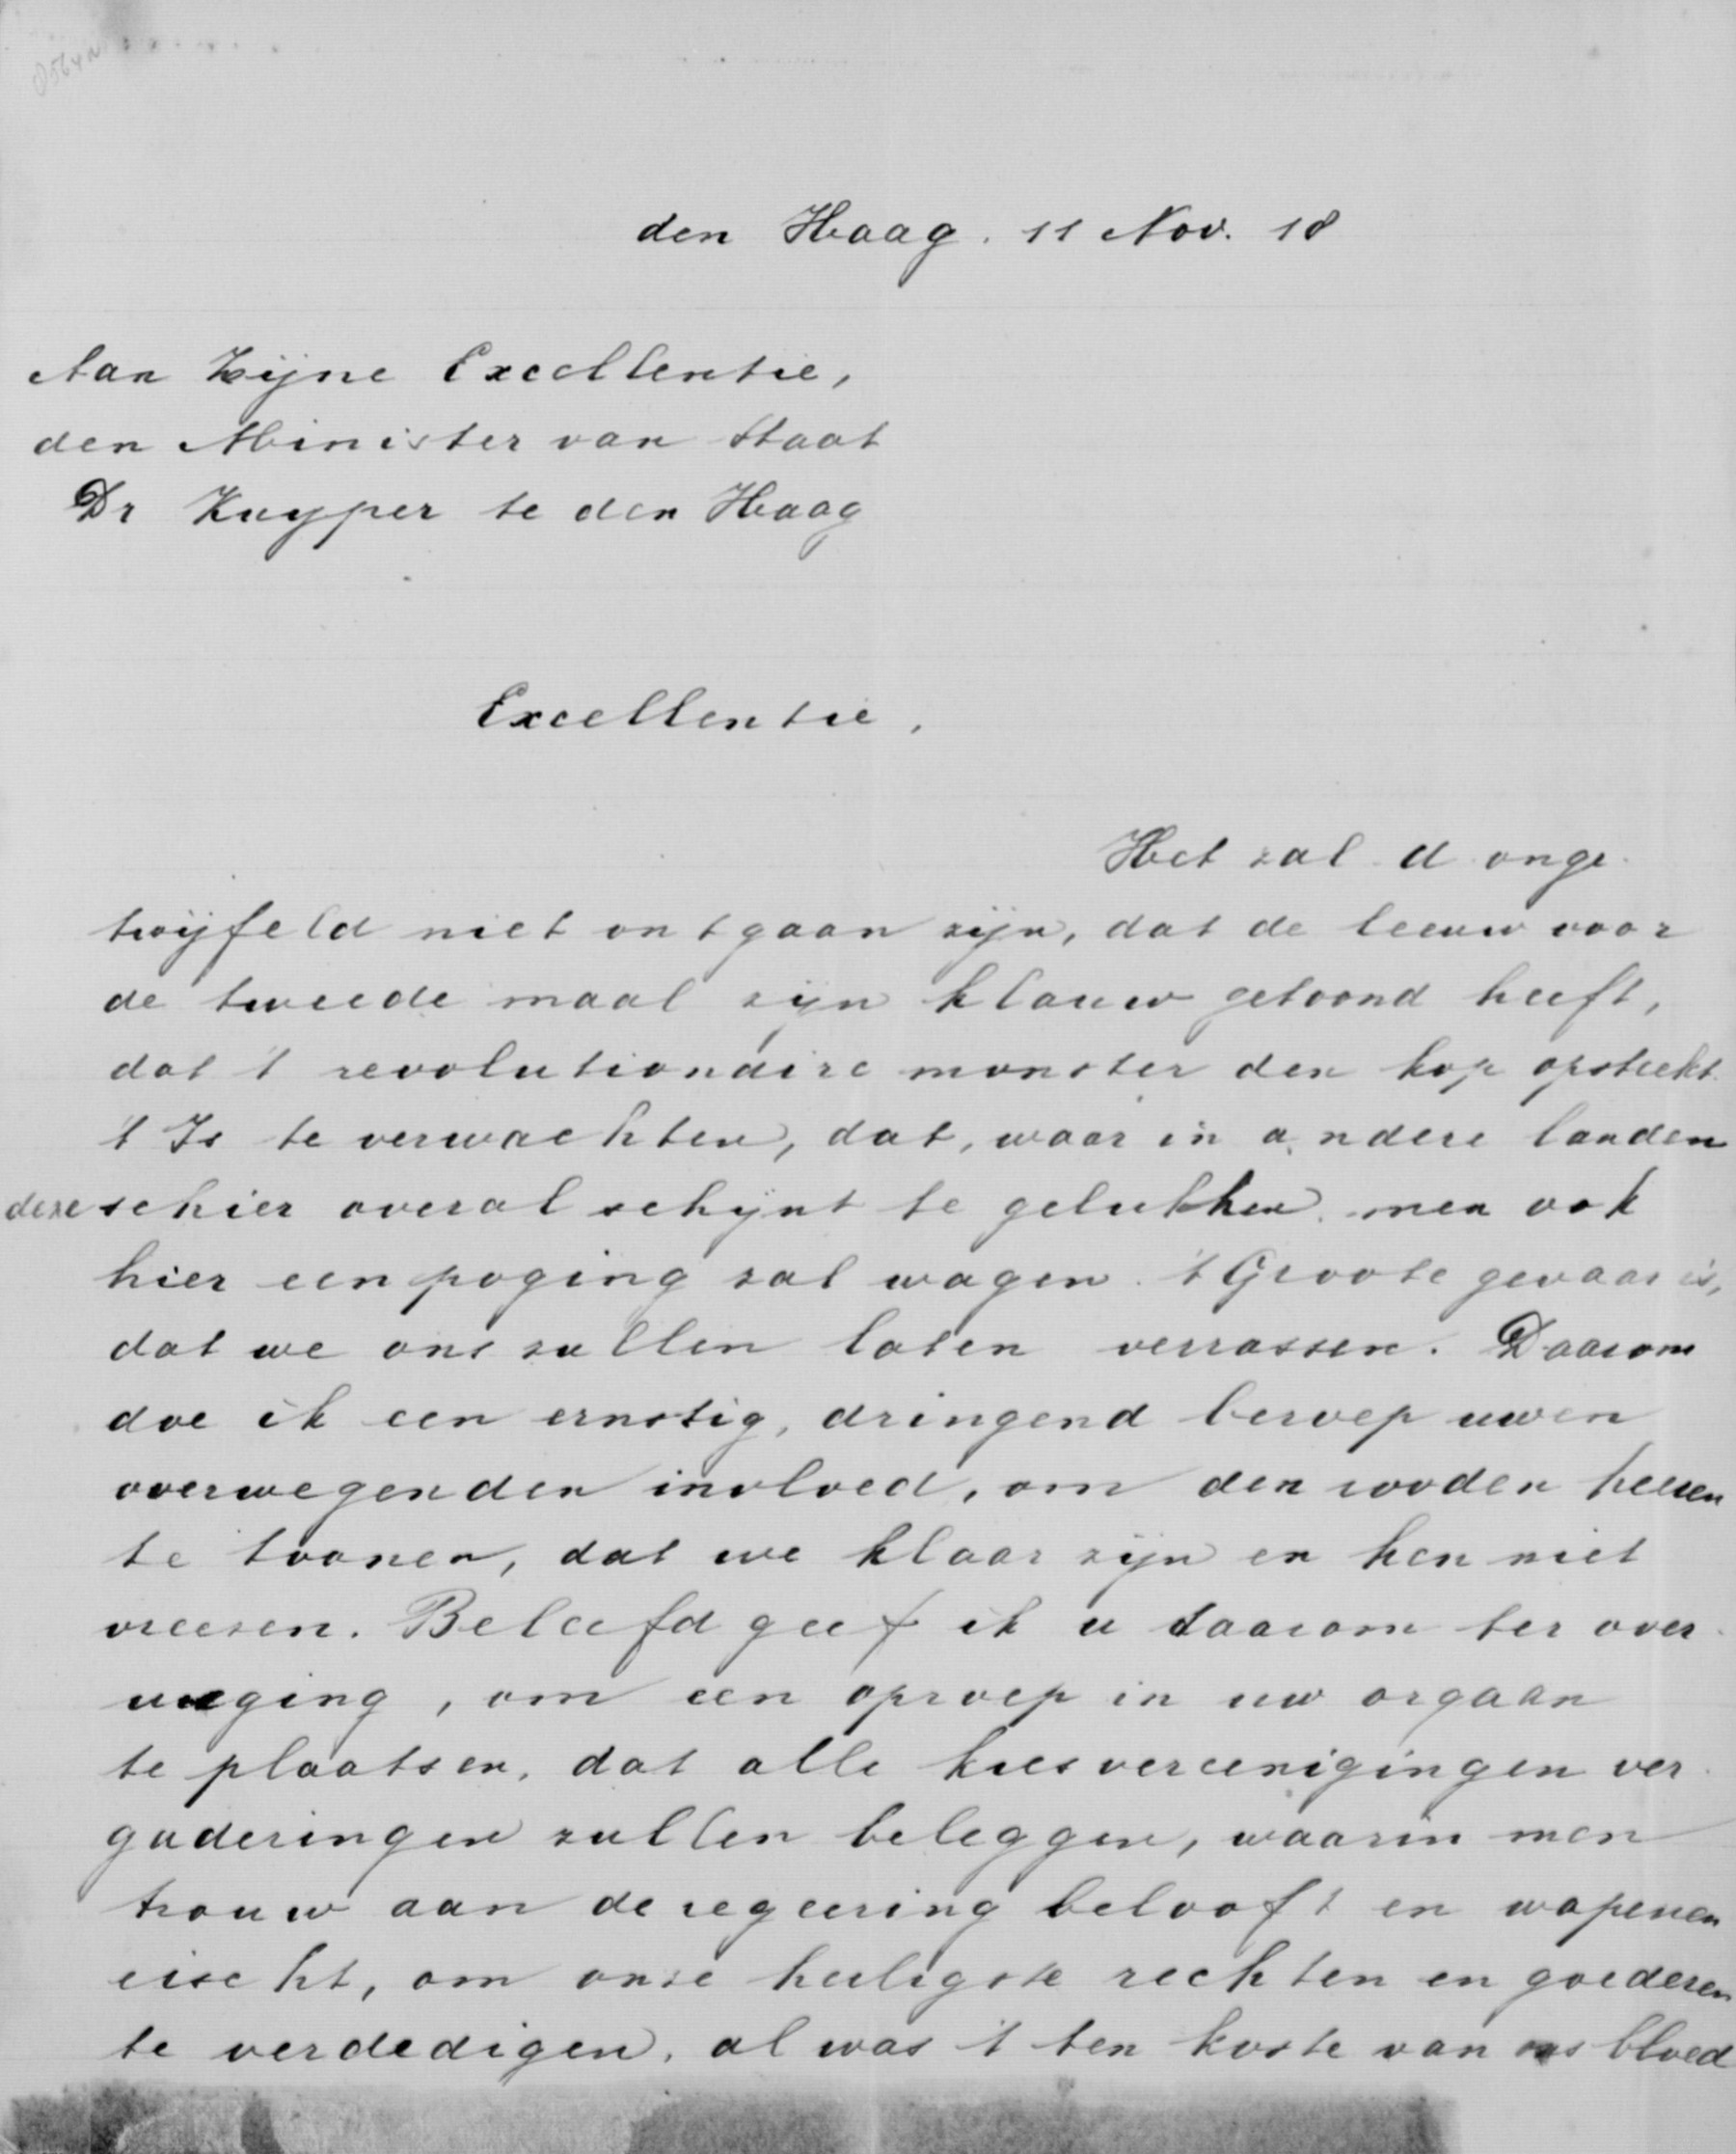 den Haag. 11 Nov. 18
Aan Zijne Excellentie,
den Minister van Staat
Dr Kuyper te den Haag
Excellentie,
Het zal U onge-
twijfeld niet ontgaan zijn, dat de leeuw voor
de tweede maal zijn klauw getoond heeft,
dat 't revolutionaire monster den kop opsteekt.
't Is te verwachten, dat, waar in andere landen
deze schier overal schijnt te gelukken, men ook
hier een poging zal wagen. 't Groote gevaar is,
dat we ons zullen laten verrassen. Daarom
doe ik een ernstig, dringend beroep uwen
overwegenden invloed, om den rooden heeren
te toonen, dat we klaar zijn en hen niet
vreezen. Beleefd geef ik u daarom ter over-
weging, om een oproep in uw orgaan
te plaatsen, dat alle kiesvereenigingen ver-
gaderingen zullen beleggen, waarin men
trouw aan de regeering belooft en wapenen
eischt, om onze heiligste rechten en goederen
te verdedigen, al was 't ten koste van ons bloed